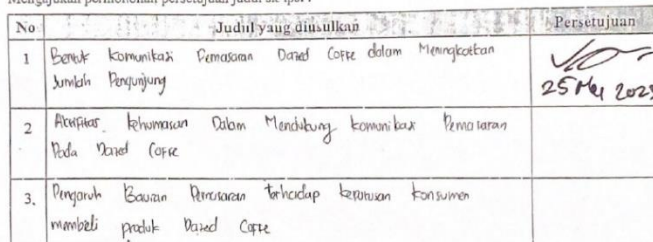 Mengajukan permohonan persetujuan judul skripsi :
No Judul yang diusulkan Persetujuan
1 Bentuk Komunikasi Pemasaran Dazed Coffe dalam Meningkatkan
Jumlah Pengunjung
25 Mei 2023
2 Aktifitas kehumasan Dalam Mendukung komunikasi Pemasaran
Pada Dazed Coffe
3. Pengaruh Bauran Pemasaran terhadap keputusan konsumen
membeli produk Dazed Coffe